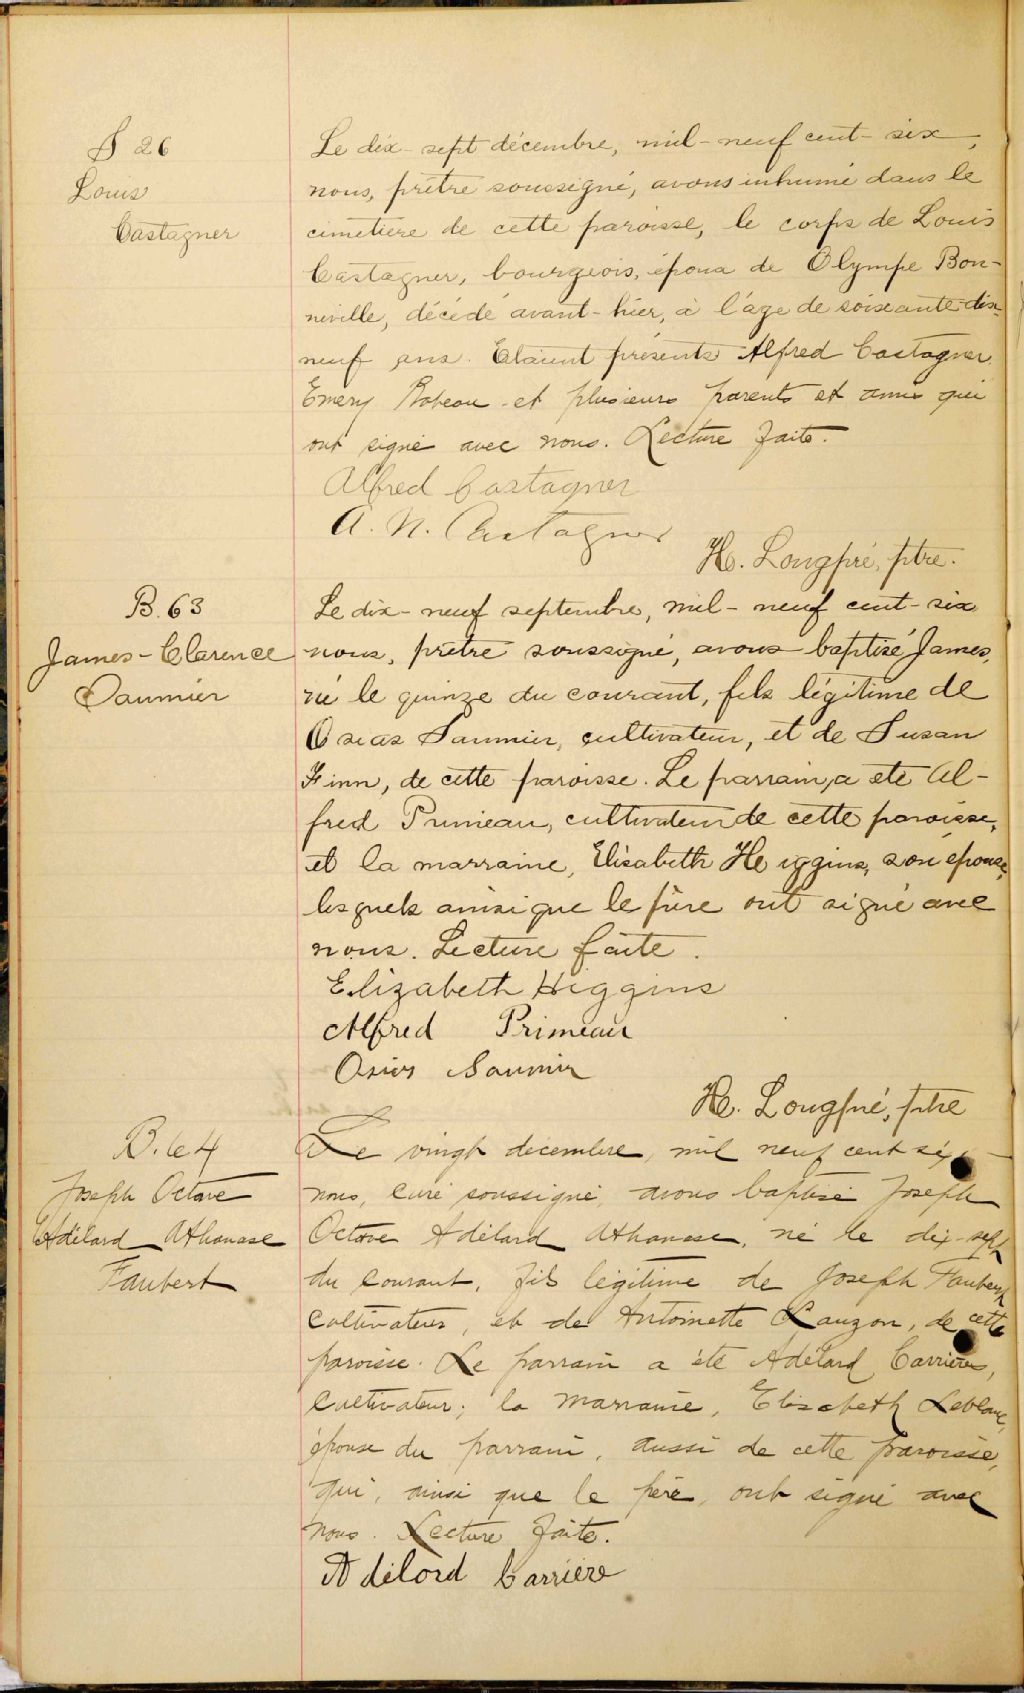 S 26
Louis
Castagner
Le dix-sept décembre, mil-neuf cent-six,
nous, prêtre soussigné, avons inhumé dans le
cimetière de cette paroisse, le corps de Louis
Castagner, bourgeois, époux de Olympe Bon-
neville, décédé avant-hier, à l'âge de soixante-dix-
neuf ans. Etaient présents Alfred Castagner
Emery et plusieurs parents et amis qui
ont signé avec nous. Lecture faite.
Alfred Castagner
A. N. Castagner
H. Longpré, ptre.
B. 63
James-Clarence
Saumier
Le dix-neuf septembre, mil-neuf cent-six
nous, prêtre soussigné, avons baptisé James,
né le quinze du courant, fils légitime de
Osias Saumier, cultivateur, et de Susan
Finn, de cette paroisse. Le parrain a été Al-
fred Primeau, cultivateur de cette paroisse,
et la marraine, Elisabeth Higgins, son épouse,
lesquels ainsi que le père ont signé avec
nous. Lecture faite.
Elizabeth Higgins
Alfred Primeau
Osias Saumier
H. Longpré, ptre
B. 64
Joseph Octave
Adélard Athanase
Faubert
Le vingt décembre, mil neuf cent six
nous, curé soussigné, avons baptisé Joseph
Octave Adélard Athanase, né le dix-sept
du courant, fils légitime de Joseph Faubert,
cultivateur, et de Antoinette Lauzon, de cette
paroisse. Le parrain a été Adélard Carrière,
cultivateur; la marraine, Elisabeth Leblanc,
épouse du parrain, aussi de cette paroisse,
qui, ainsi que le père, ont signé avec
nous. Lecture faite.
Adélord Carrière